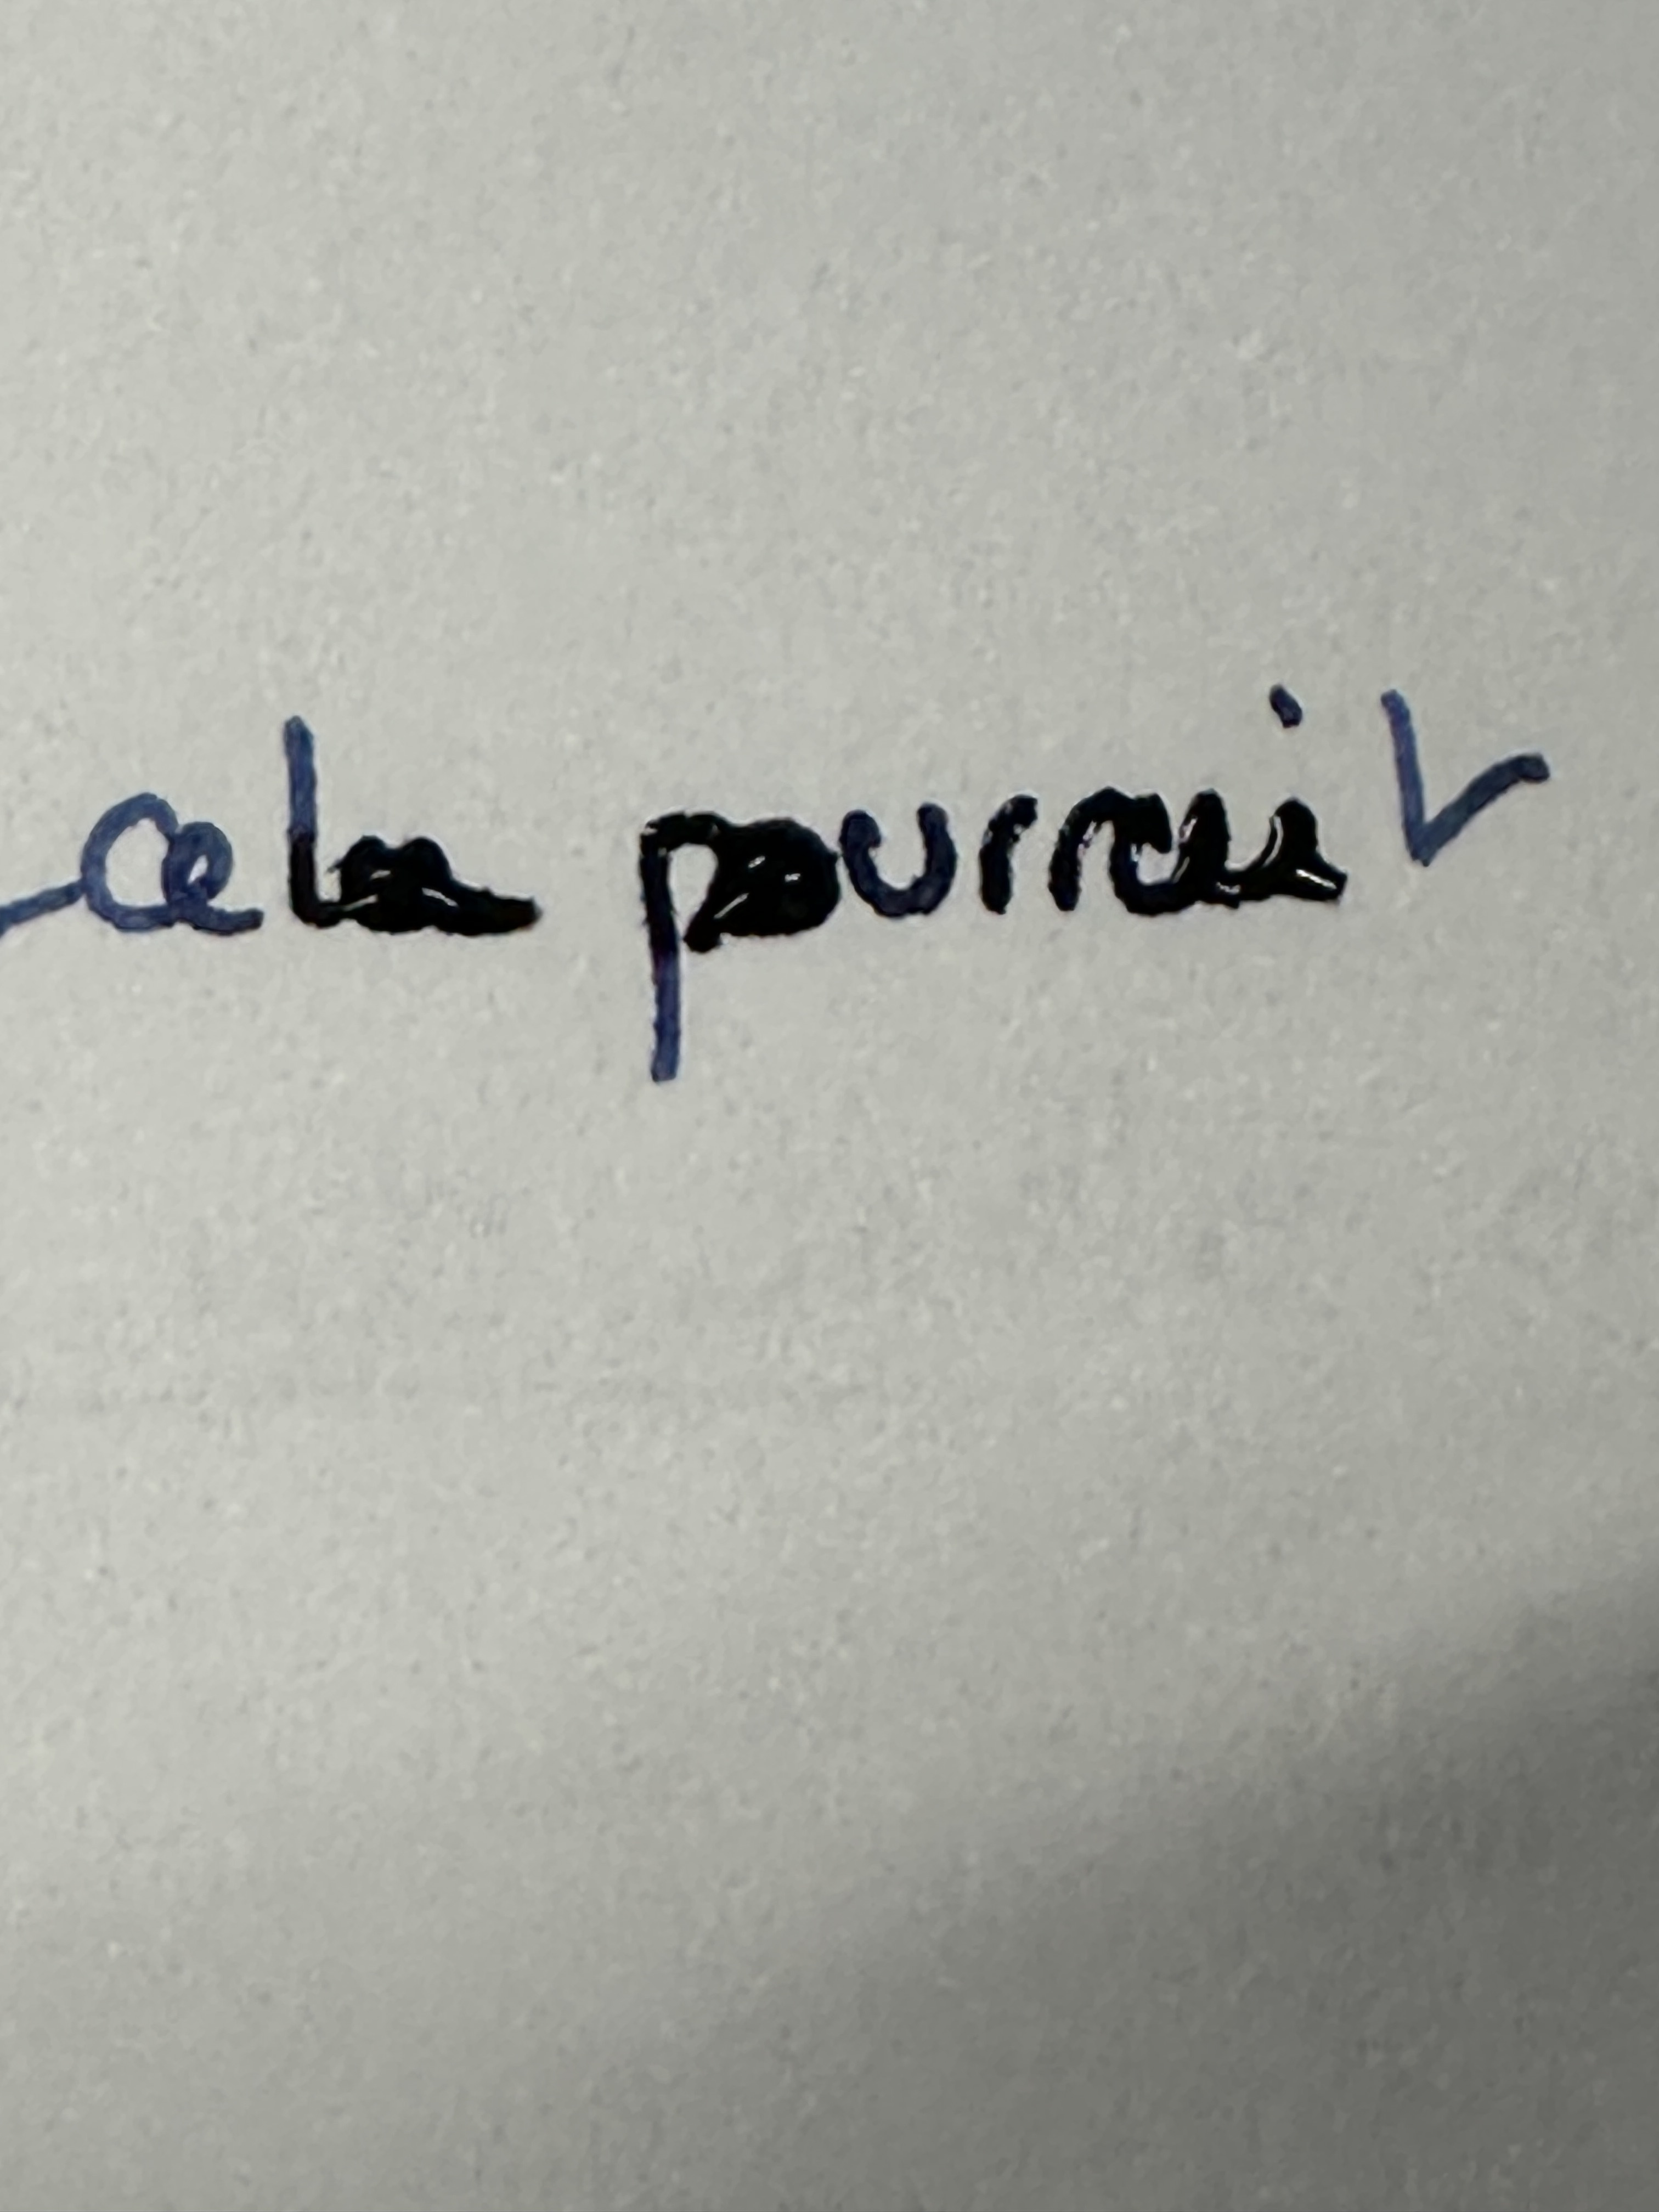 cela pourrait